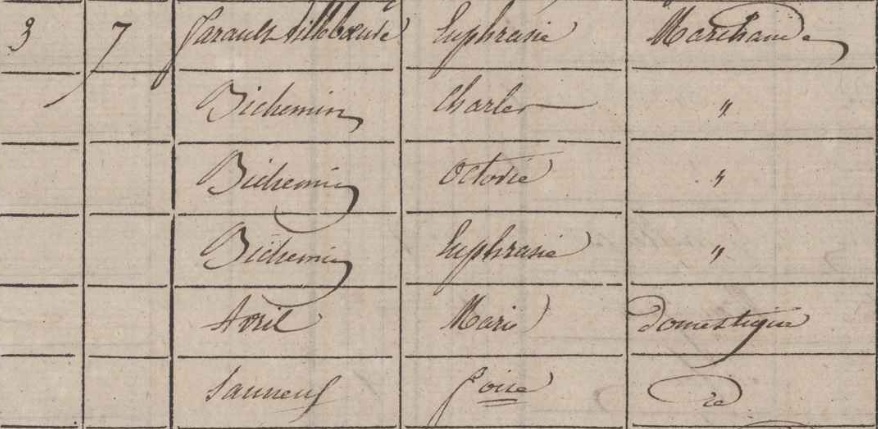 3 7 Garault Villeboeuve Euphrasie Marchande
Bichemin Charles "
Bichemin Octavie "
Bichemin Euphrasie "
Avril Marie domestique
Sanneuf id